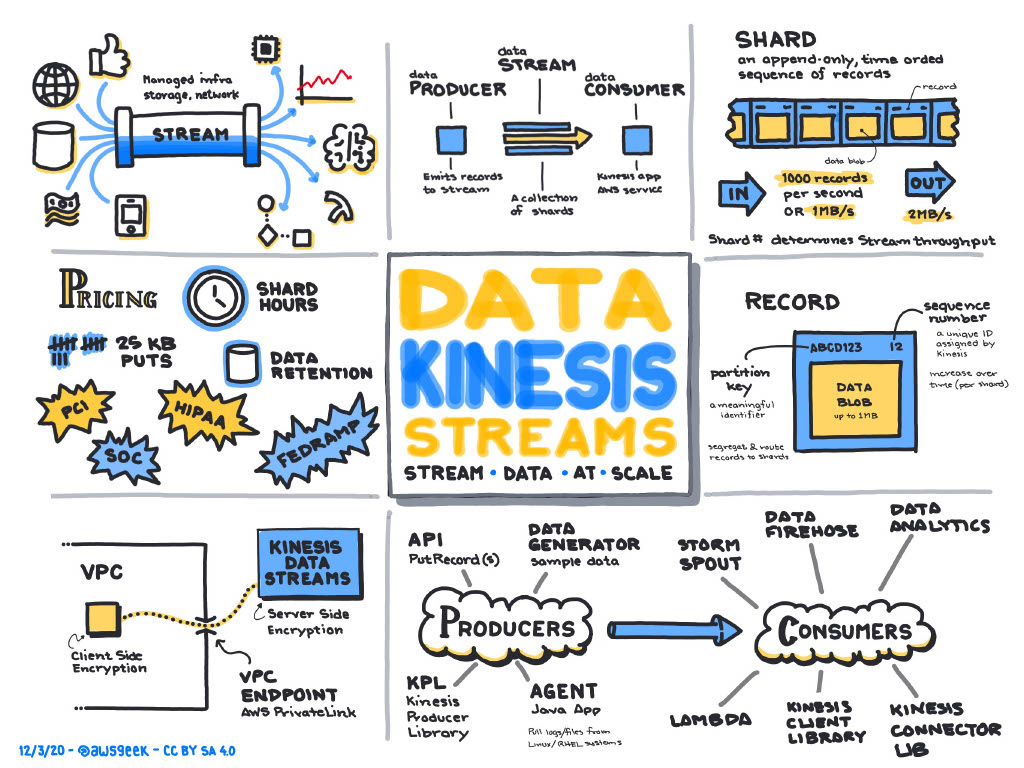 Managed infra
storage, network
STREAM
data
PRODUCER
data
STREAM
data
CONSUMER
Emits records
to stream
A collection
of shards
Kinesis app
AWS service
SHARD
an append-only, time orded
sequence of records
record
data blob
IN
1000 records
per second
OR 1MB/s
OUT
2MB/s
Shard # determines Stream throughput
PRICING
SHARD
HOURS
25 KB
PUTS
DATA
RETENTION
PCI
HIPAA
SOC
FEDRAMP
DATA
KINESIS
STREAMS
STREAM • DATA • AT • SCALE
RECORD
sequence
number
a unique ID
assigned by
Kinesis
increase over
time (per shard)
ABCD123 12
partition
key
a meaningful
identifier
segregat & route
records to shards
DATA
BLOB
up to 1MB
VPC
KINESIS
DATA
STREAMS
Server Side
Encryption
Client Side
Encryption
VPC
ENDPOINT
AWS PrivateLink
API
PutRecord(s)
DATA
GENERATOR
sample data
PRODUCERS
KPL
Kinesis
Producer
Library
AGENT
Java App
Pull logs/files from
Linux/RHEL systems
STORM
SPOUT
DATA
FIREHOSE
DATA
ANALYTICS
CONSUMERS
LAMBDA
KINESIS
CLIENT
LIBRARY
KINESIS
CONNECTOR
LIB
12/3/20 - @awsgeek - CC BY SA 4.0